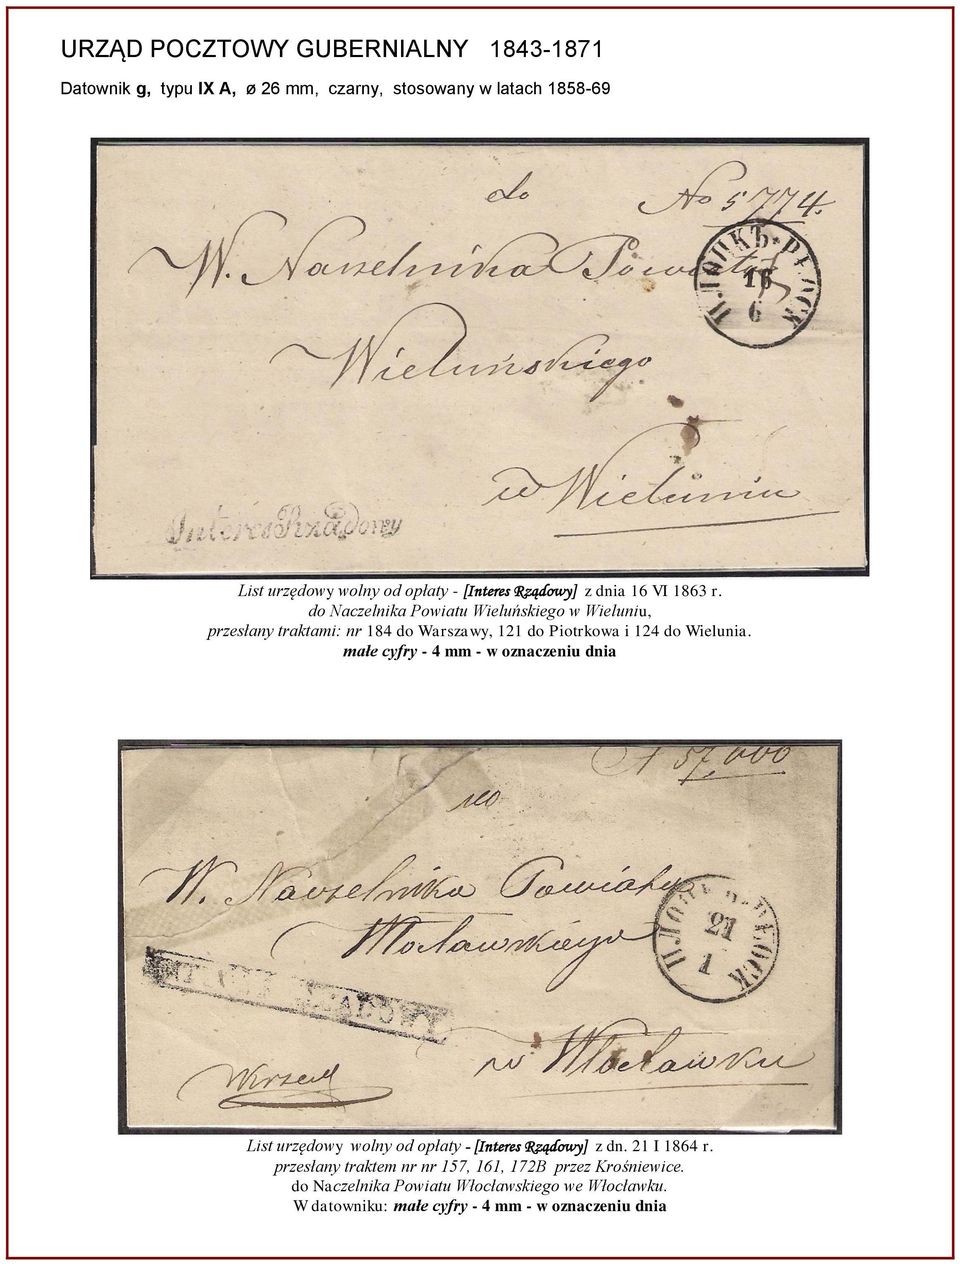 URZĄD POCZTOWY GUBERNIALNY 1843-1871
Datownik g, typu IX A, ø 26 mm, czarny, stosowany w latach 1858-69
do No 5774.
W. Naczelnika Powiatu
ПЛОЦКЪ * PŁOCK
16
6
Wieluńskiego
w Wieluniu
Interes Rządowy
List urzędowy wolny od opłaty - [Interes Rządowy] z dnia 16 VI 1863 r.
do Naczelnika Powiatu Wieluńskiego w Wieluniu,
przesłany traktami: nr 184 do Warszawy, 121 do Piotrkowa i 124 do Wielunia.
małe cyfry - 4 mm - w oznaczeniu dnia
57,000
do
W. Naczelnika Powiatu
Włocławskiego
ПЛОЦКЪ * PŁOCK
21
1
INTERES RZĄDOWY
w Włocławku
List urzędowy wolny od opłaty - [Interes Rządowy] z dn. 21 I 1864 r.
przesłany traktem nr nr 157, 161, 172B przez Krośniewice.
do Naczelnika Powiatu Włocławskiego we Włocławku.
W datowniku: małe cyfry - 4 mm - w oznaczeniu dnia